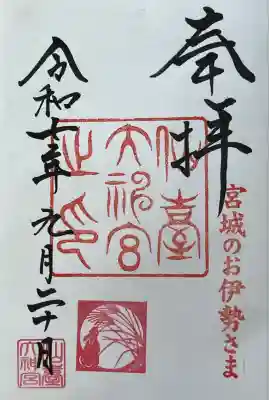 奉拝
宮城のお伊勢さま
仙臺
大神宮
之印
令和七年九月二十日